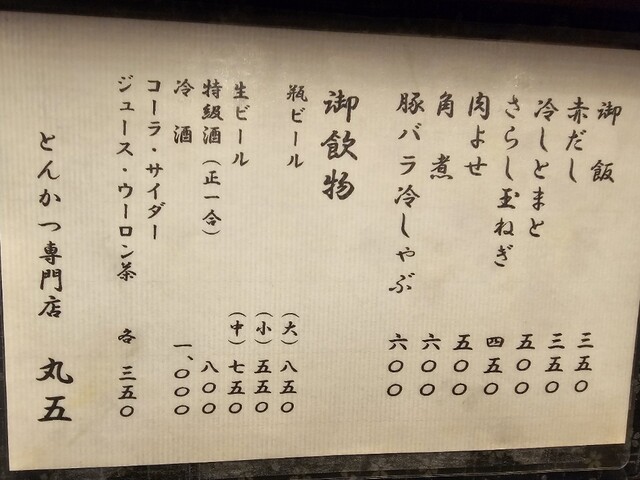 御飯 三五〇
赤だし 三五〇
冷しとまと 五〇〇
さらし玉ねぎ 四五〇
肉よせ 五〇〇
角煮 六〇〇
豚バラ冷しゃぶ 六〇〇
御飲物
瓶ビール (大) 八五〇
(小) 五五〇
生ビール (中) 七五〇
特級酒(正一合) 八〇〇
冷酒 一、〇〇〇
コーラ・サイダー
ジュース・ウーロン茶 各 三五〇
とんかつ専門店 丸五